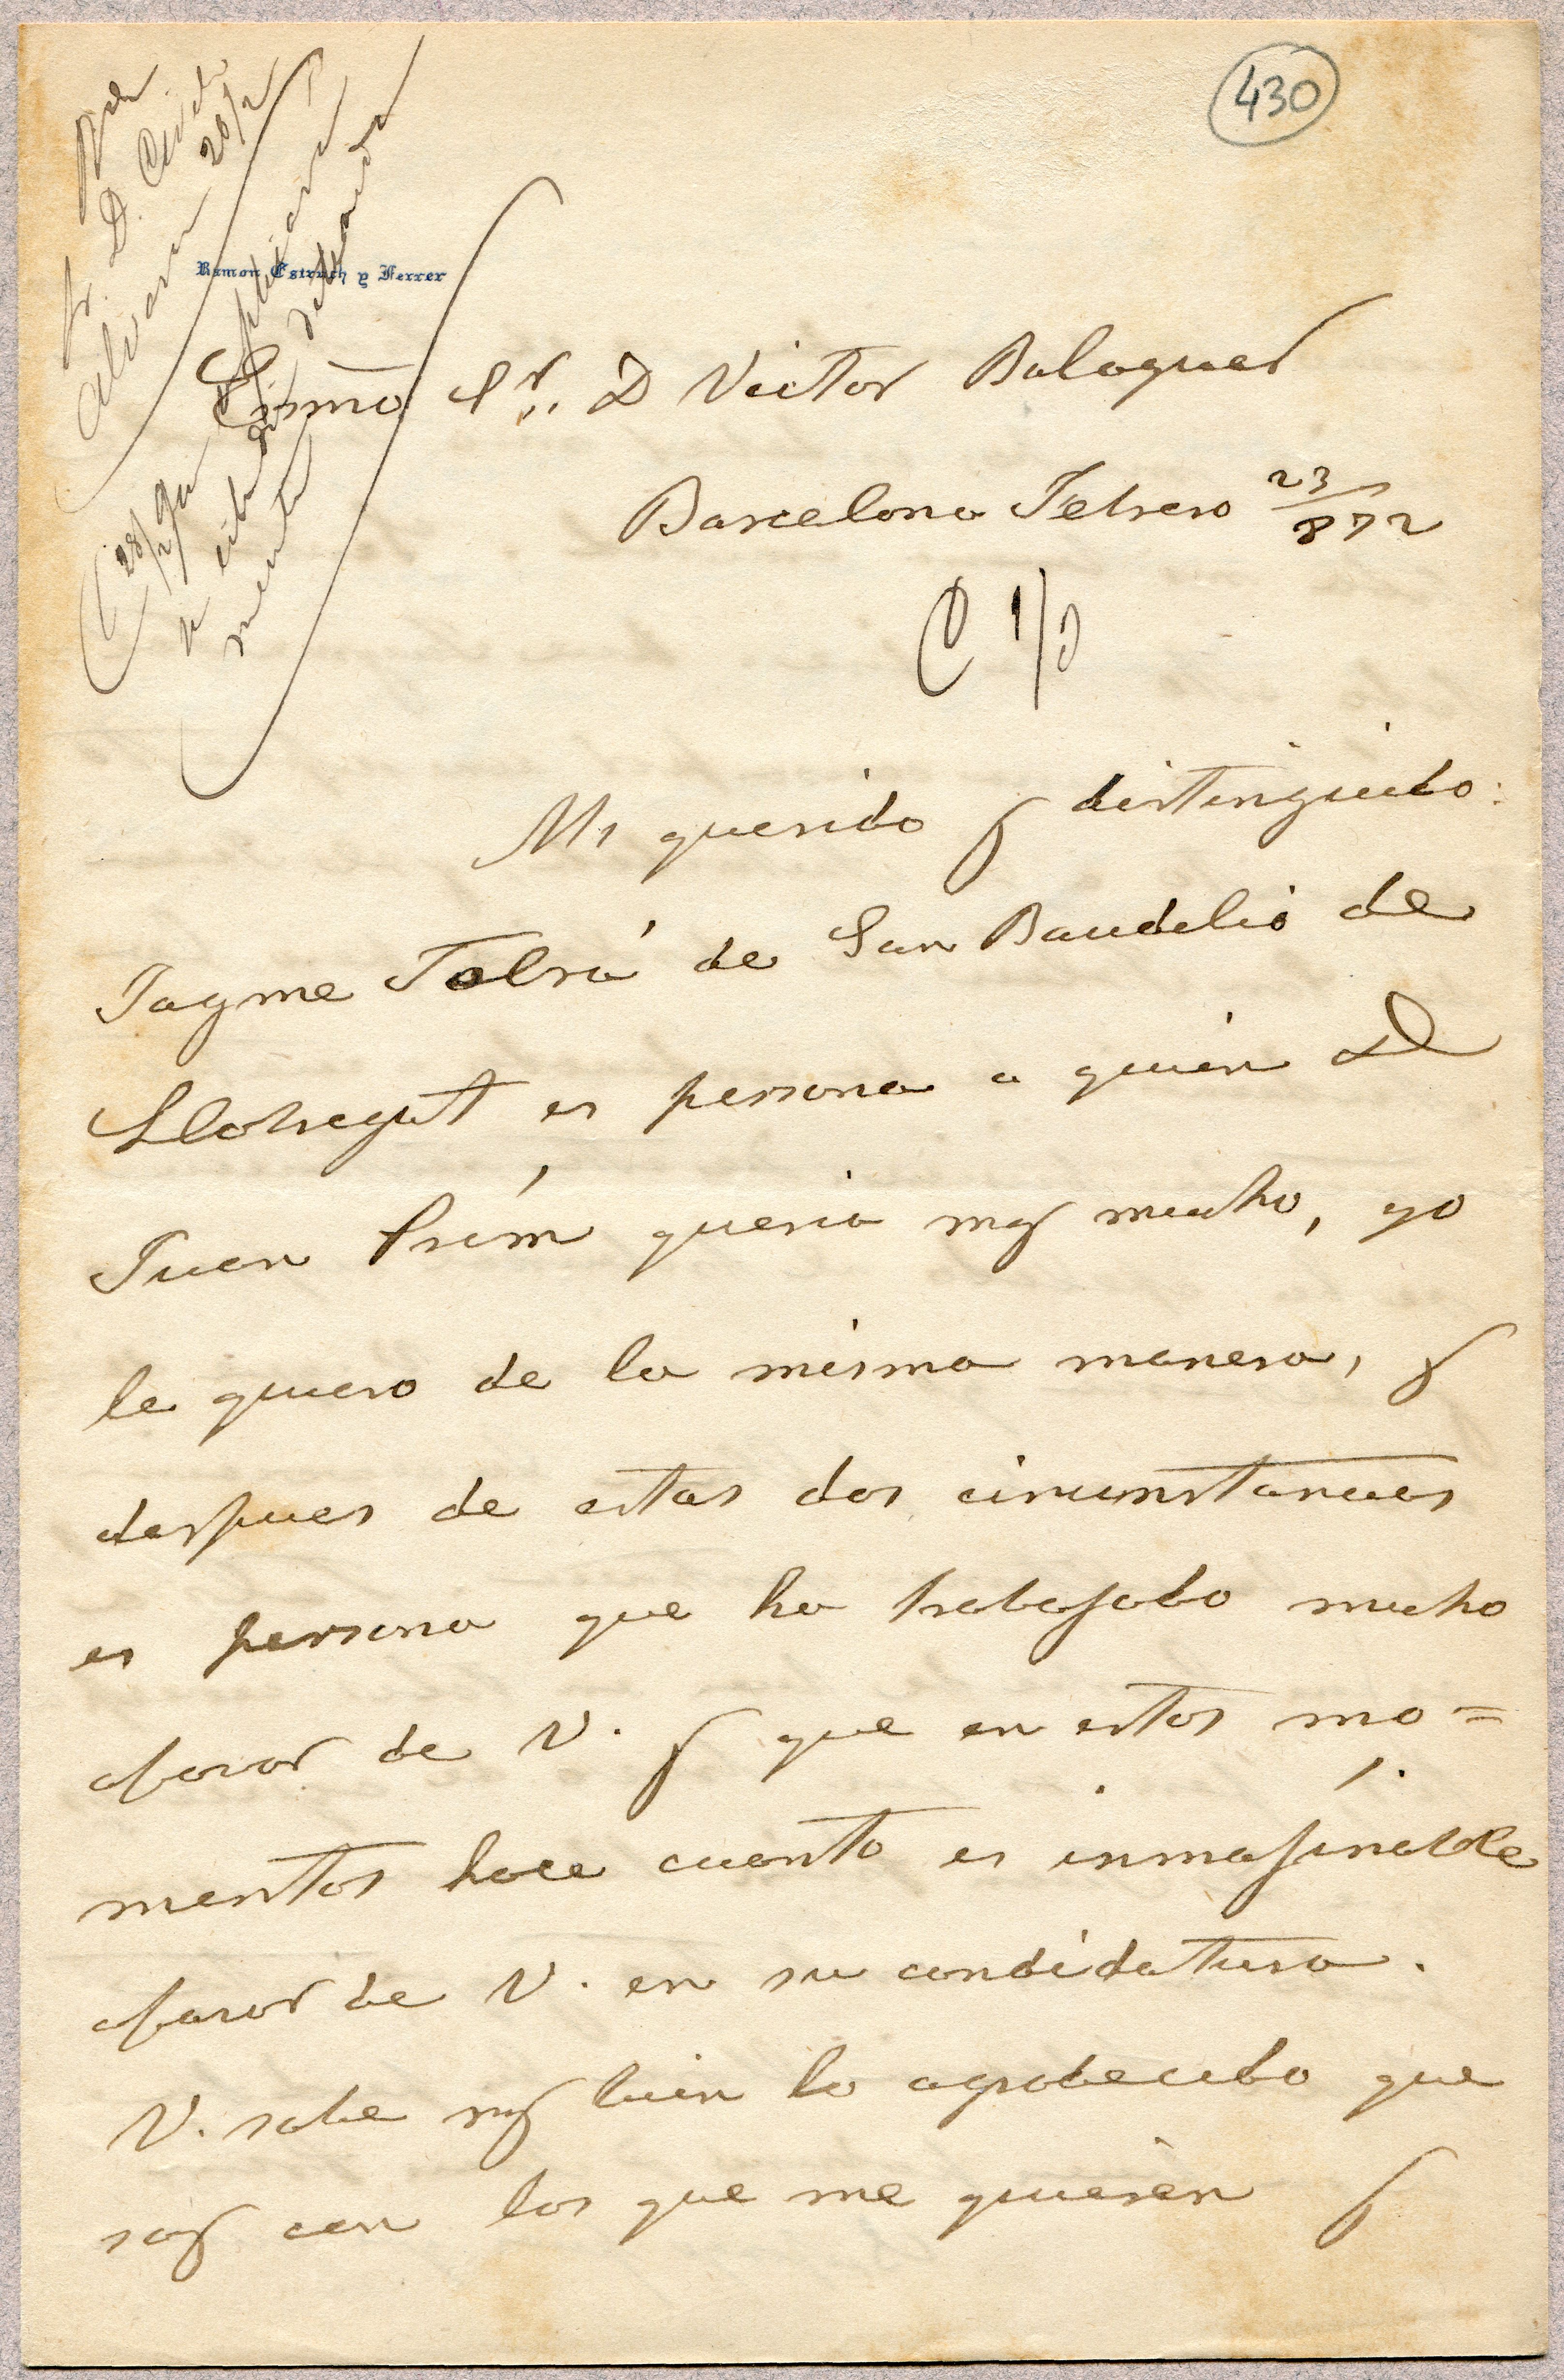 430
Ramon Estruch y Ferrer
Exmo Sr. D Victor Balaguer
Barcelona Febrero 23/872
C 1/3
Mi querido y distinguido:
Jayme Tolrá de San Baudelio de
Llobregat es persona a quien D
Juan Prím queria muy mucho, yo
le quiero de la misma manera, y
despues de estas dos circunstancias
es persona que ha trabajado mucho
afavor de V. y que en estos mo=
mentos hace cuanto es inmajinable
afavor de V. en su candidatura.
V. sabe muy bien lo agradecido que
soy con los que me quieren y